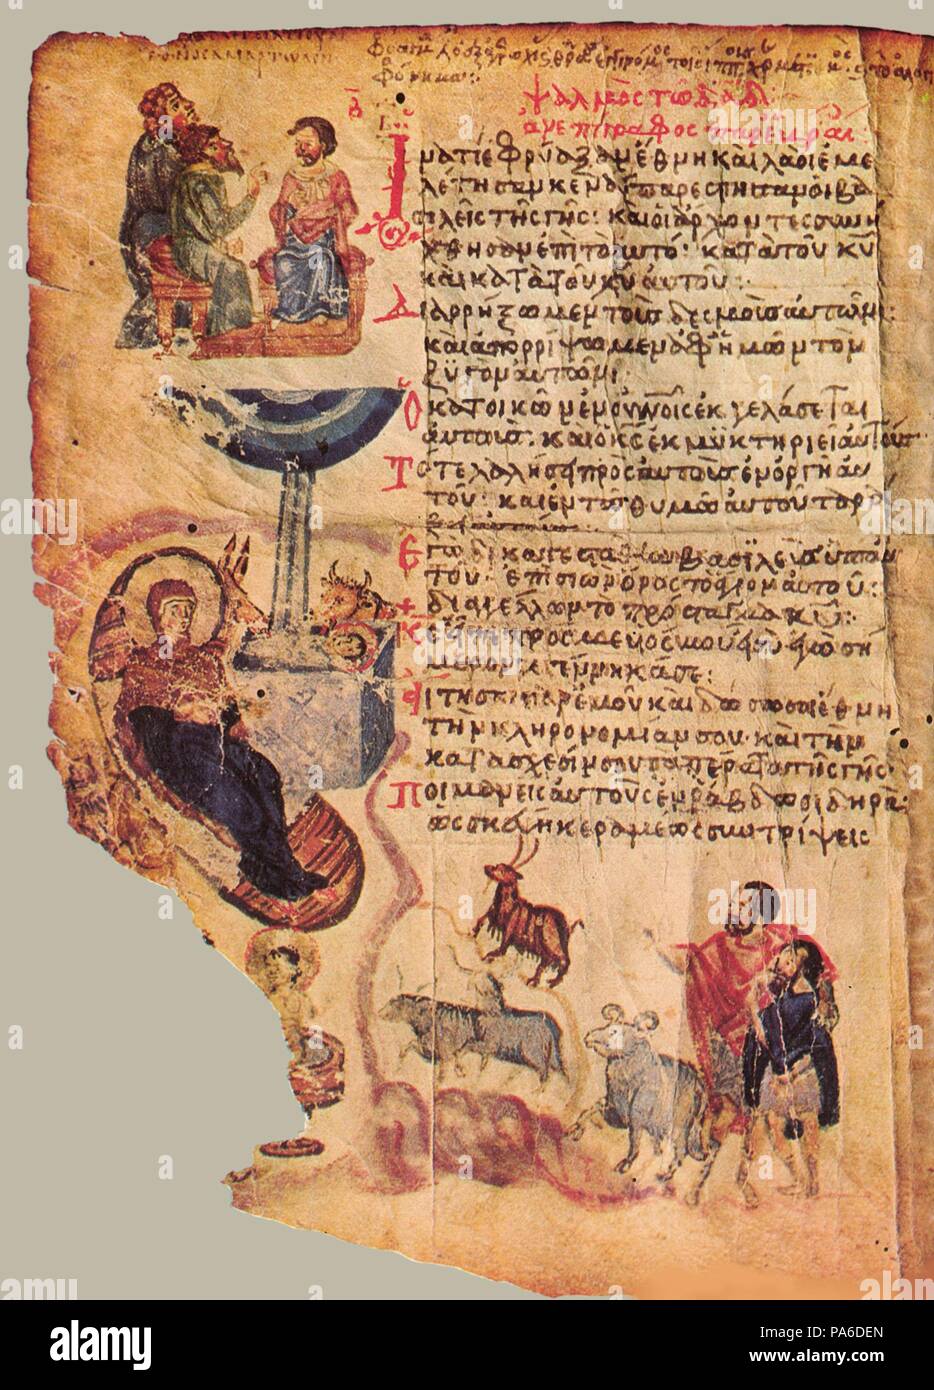 ψαλμὸς τῷ δαδ
ἀνεπίγραφος παρ' ἑβραί
Ἱνατί ἐφρύαξαν ἔθνη καὶ λαοὶ ἐμε
λέτησαν κενά παρέστησαν οἱ βα
σιλεῖς τῆς γῆς: καὶ οἱ ἄρχοντες συνή
χθησαν ἐπὶ τὸ αὐτό: κατὰ τοῦ κυ
καὶ κατὰ τοῦ χυ αὐτοῦ:
Διαρρήξωμεν τοὺς δεσμοὺς αὐτῶν:
καὶ ἀπορρίψωμεν ἀφ' ἡμῶν τὸν
ζυγὸν αὐτῶν:
Ὁ κατοικῶν ἐν οὐνοῖς ἐκγελάσεται
αὐτούς: καὶ ὁ κς ἐκμυκτηριεῖ αὐτούς
Τότε λαλήσει πρὸς αὐτοὺς ἐν ὀργῆ αὐ
τοῦ: καὶ ἐν τῷ θυμῷ αὐτοῦ ταρά
ξει αὐτούς
Ἐγὼ δὲ κατεστάθην βασιλεὺς ὑπ' αὐ
τοῦ: ἐπὶ σιὼν ὄρος τὸ ἅγιον αὐτοῦ:
διαγγέλλων τὸ πρόσταγμα κυ:
Κς εἶπεν πρός με υἱός μου εἶ σὺ ἐγὼ σή
μερον γεγέννηκά σε:
Αἴτησαι παρ' ἐμοῦ καὶ δώσω σοι ἔθνη
τὴν κληρονομίαν σου· καὶ τὴν
κατάσχεσίν σου τὰ πέρατα τῆς γῆς·
Ποιμανεῖς αὐτοὺς ἐν ῥάβδω σιδηρᾶ:
ὡς σκεύη κεραμέως συντρίψεις
alamy
Image ID: PA6DEN
www.alamy.com